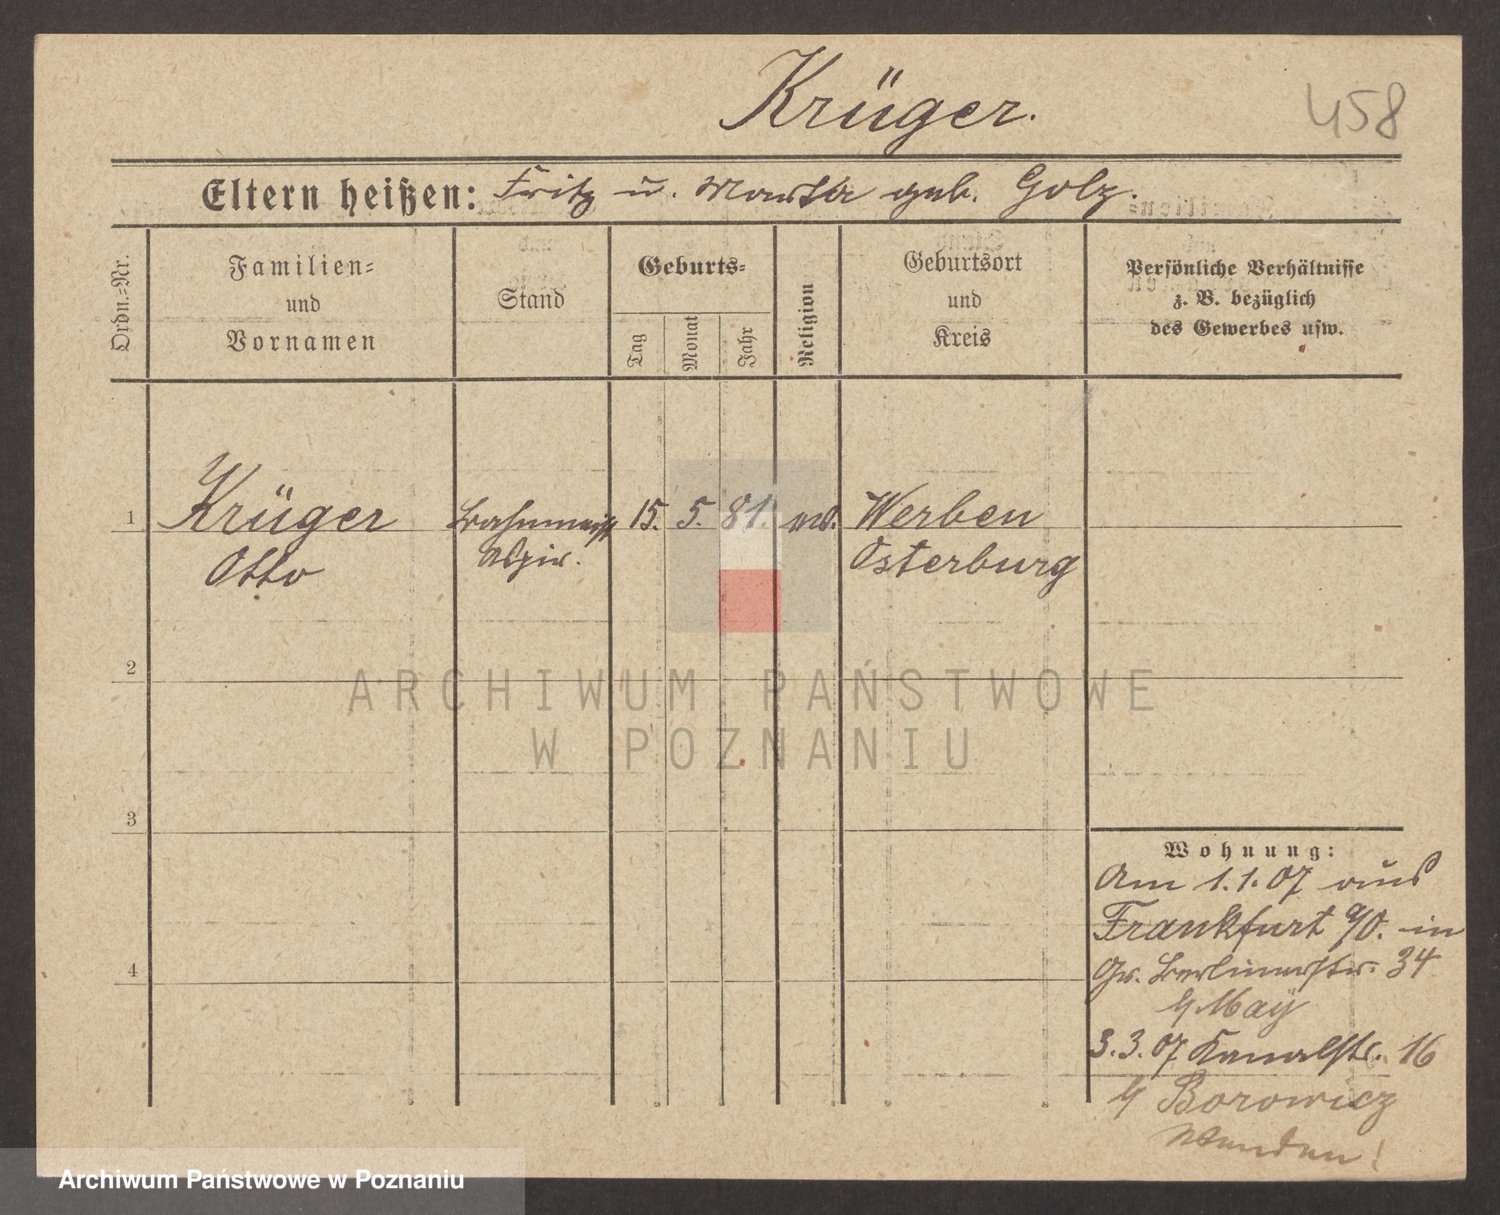 Krüger.
458
Eltern heißen: Fritz u. Martha geb. Golz.
Ordn.=Nr.
Familien=
und
Vornamen
Stand
Geburts=
Tag
Monat
Jahr
Religion
Geburtsort
und
Kreis
Persönliche Verhältnisse
z. B. bezüglich
des Gewerbes usw.
1
Krüger
Otto
Bahnmeist
Aspir.
15.
5.
81.
ev.
Werben
Osterburg
2
ARCHIWUM PAŃSTWOWE
W POZNANIU
3
4
Wohnung:
Am 1.1.07 aus
Frankfurt a/O. in
Gr. Berlinerstr. 34
b/ May
3.3.07 Kanalstr. 16
b/ Borowicz
Wenden!
Archiwum Państwowe w Poznaniu